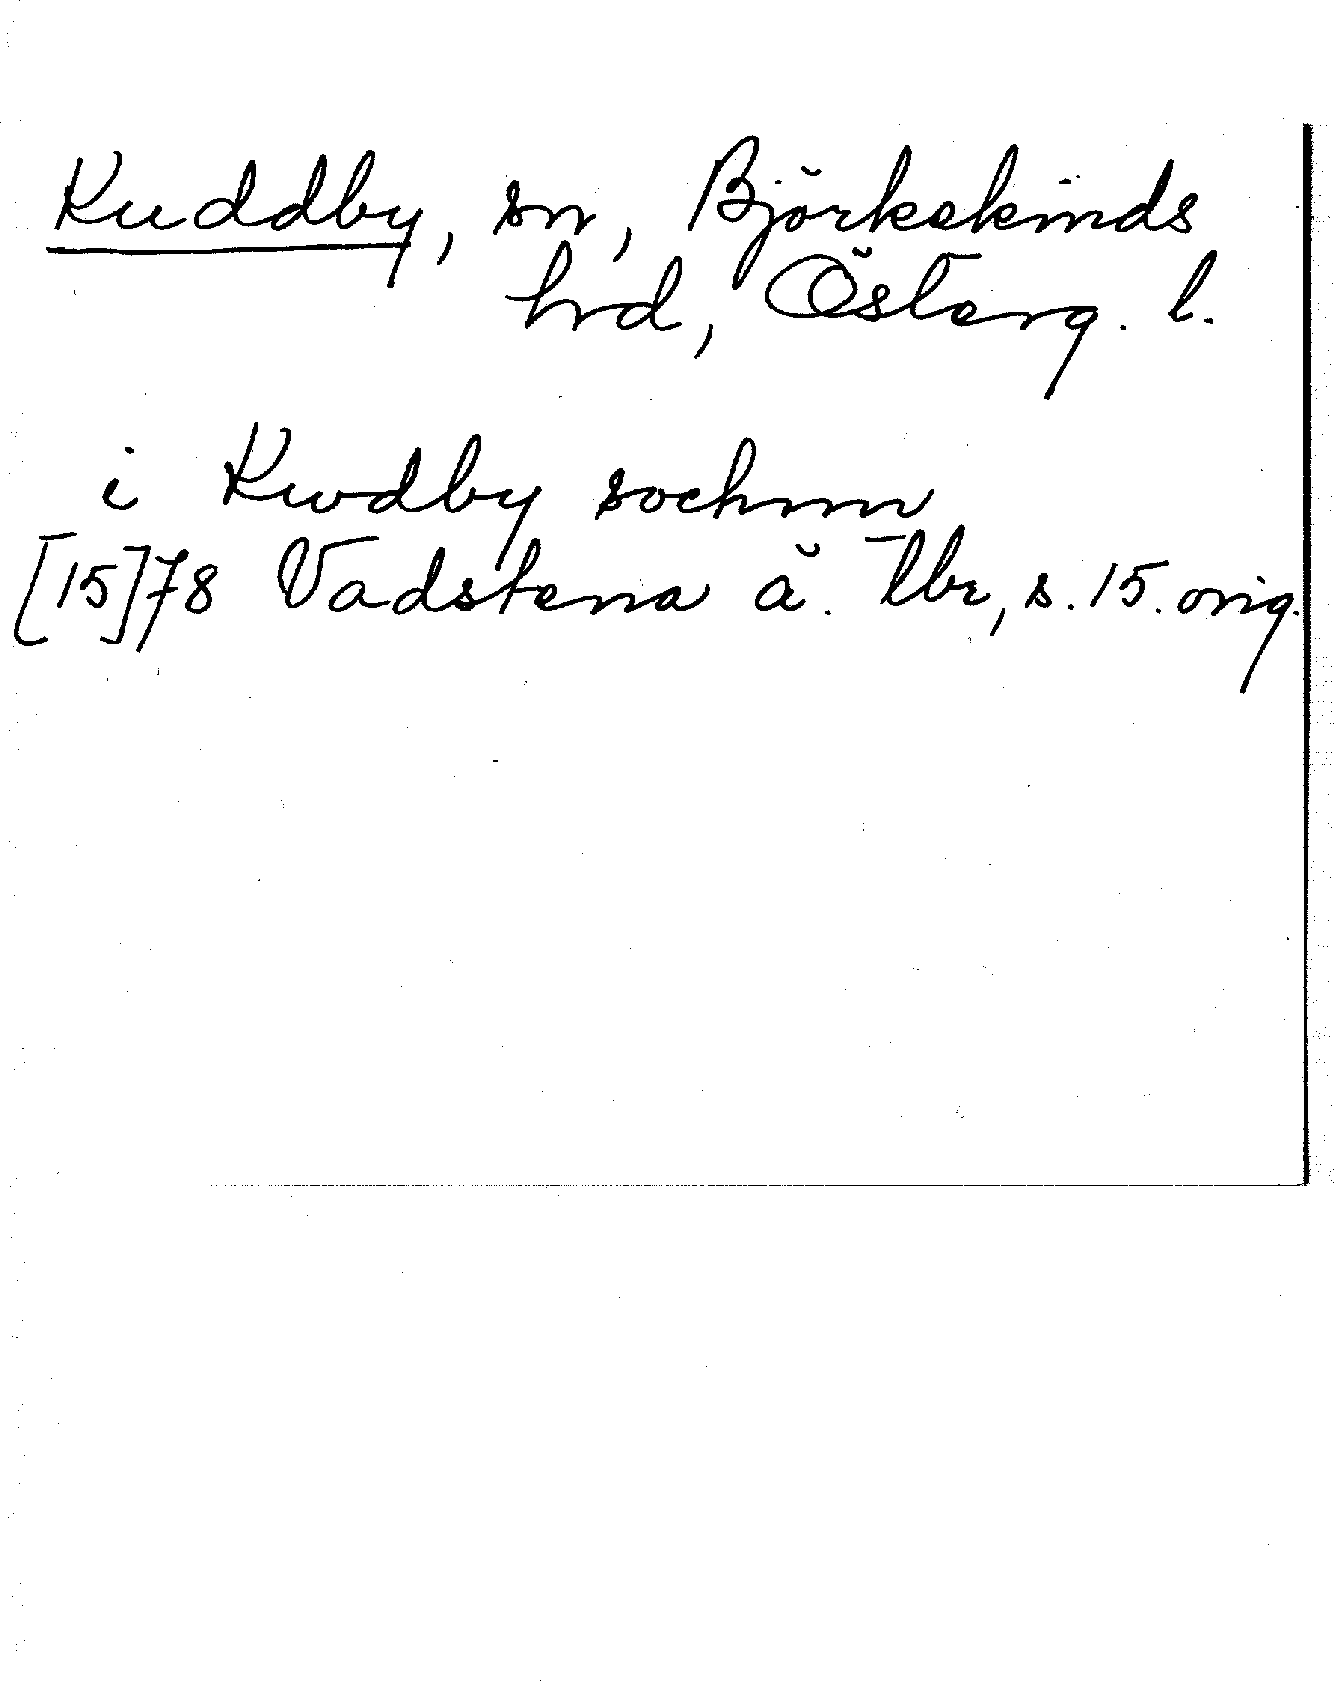 Kuddby, sn, Björkekinds
hrd, Österg. l.
i Kwdby sochnn
[15]78 Vadstena ä. tbr, s. 15. orig.